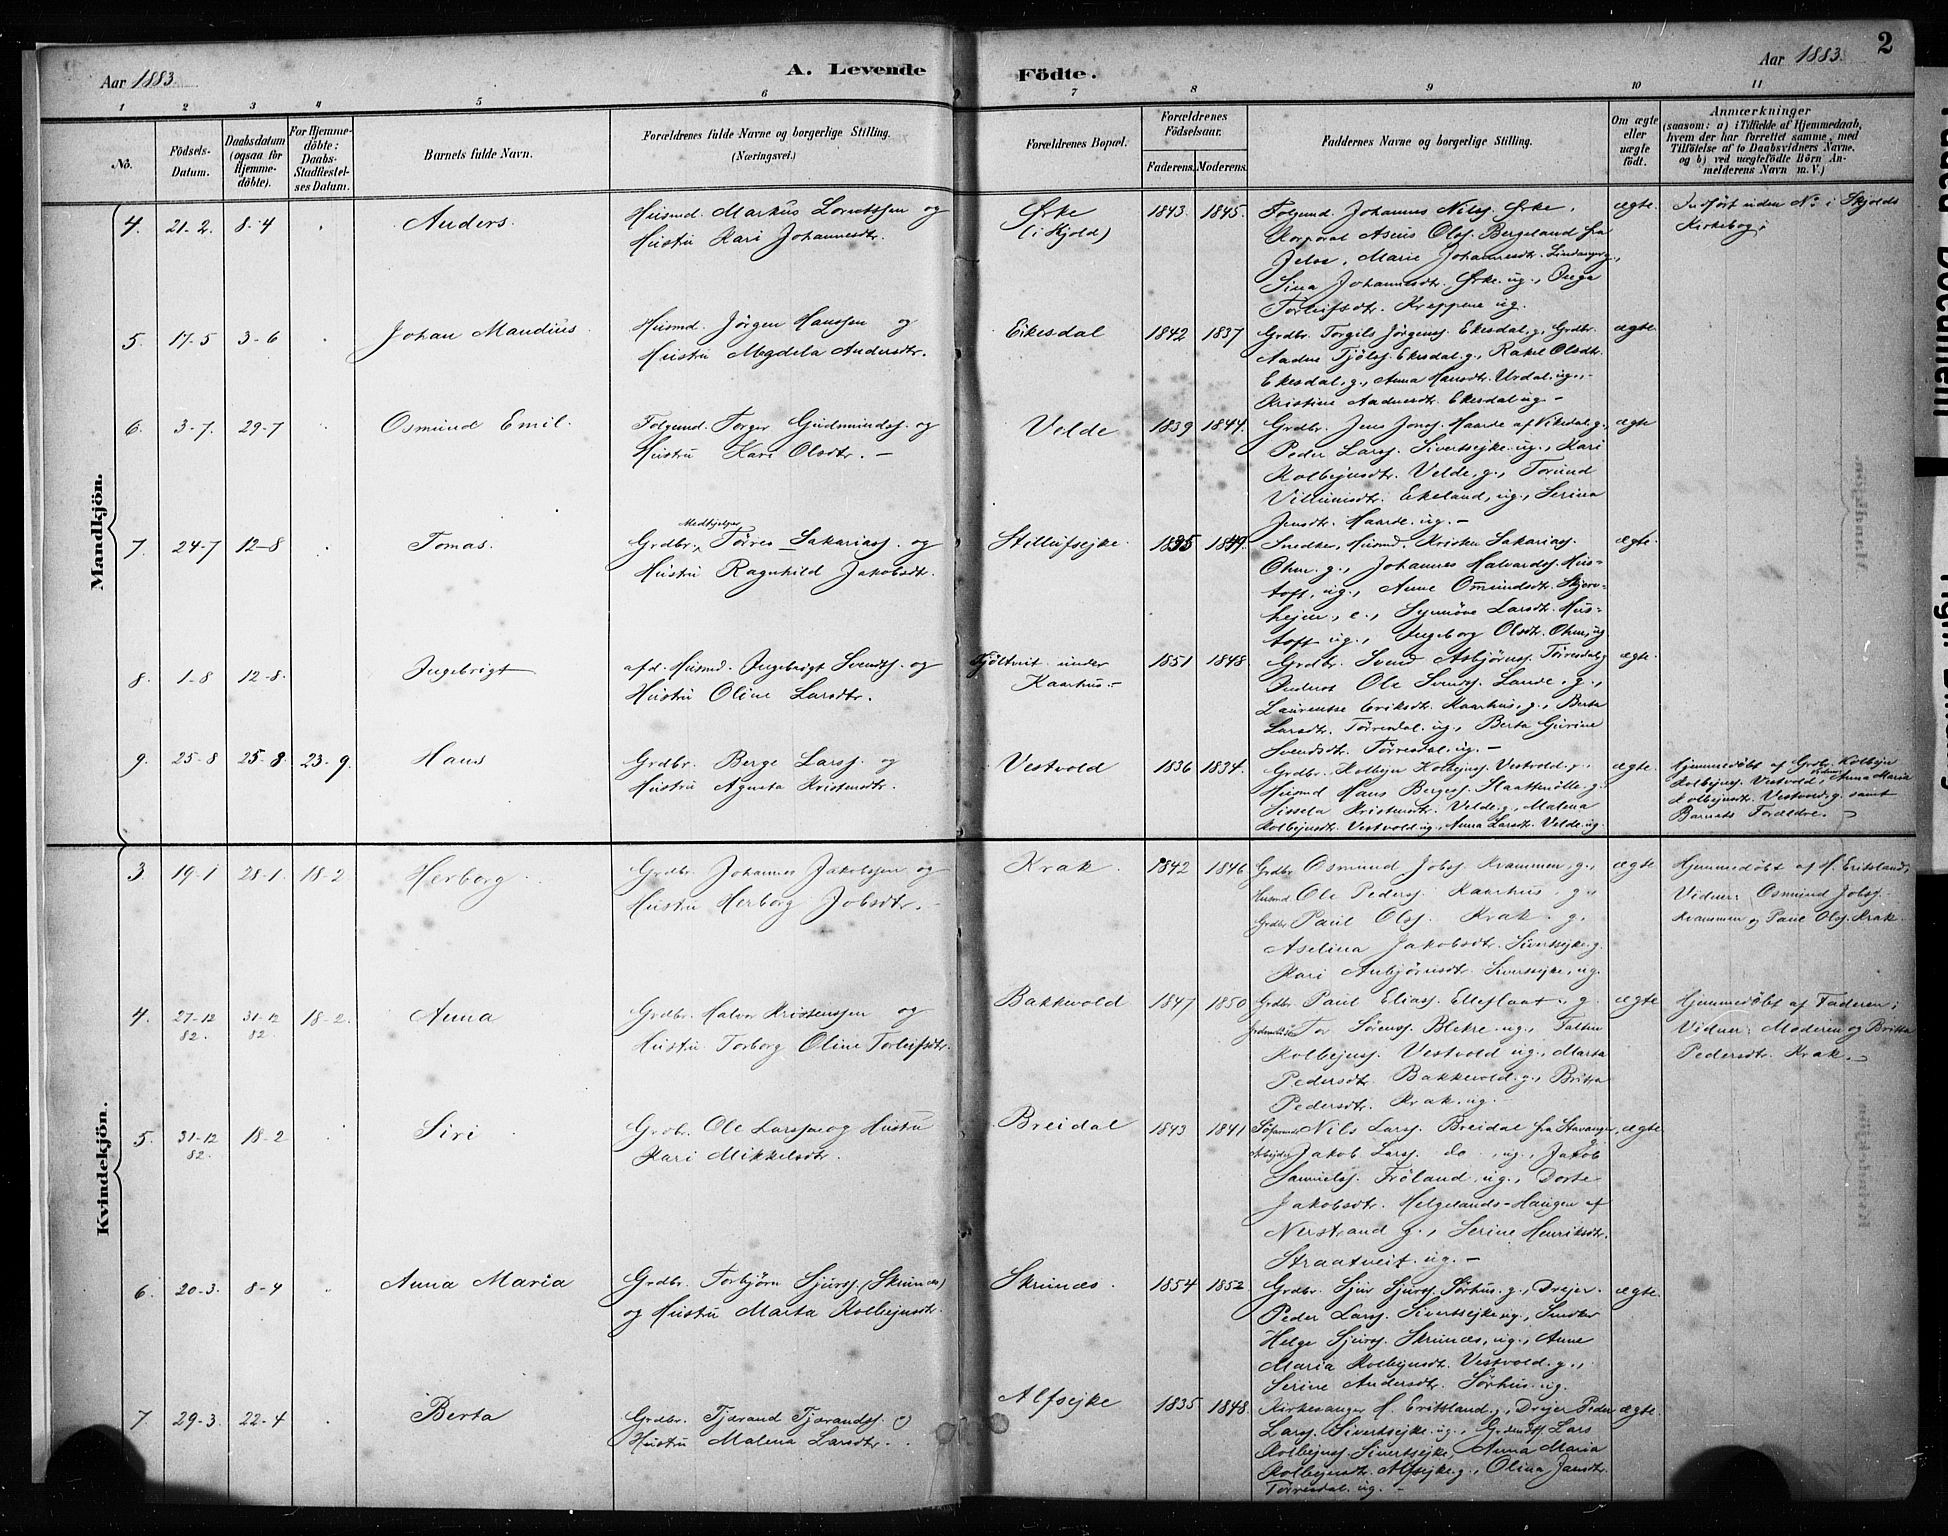 Aar 1883.
A. Levende Födte.
Aar 1883.
2
1 2 3 4 5 6 7 8 9 10 11
No.
Födsels-
Datum.
Daabsdatum
(ogsaa for
Hjemme-
döbte).
For Hjemme-
döbte:
Daabs-
Stadfestel-
ses Datum.
Barnets fulde Navn.
Forældrenes fulde Navne og borgerlige Stilling.
(Næringsvei.)
Forældrenes Bopæl.
Forældrenes
Födselsaar.
Faderens. Moderens.
Faddernes Navne og borgerlige Stilling.
Om ægte
eller
uægte
födt.
Anmærkninger
(saasom: a) i Tilfælde af Hjemmedaab,
hvem der har forrettet samme, med
Tilföielse af to Daabsvidners Navne.
og b) ved uægtefödte Börn An-
melderens Navn m. V.)
Mandkjön.
4. 21-2. 8-4 Anders.
Husmd. Markus Lorentssen og
Hustru Kari Johannesdtr.
Ørke
(i Skjold)
1843. 1845.
Folgemd. Johannes Nilss. Ørke,
Korporal Asius Olss. Bergeland fra
Jelse, Marie Johannesdtr.
Sina Johannesdtr. Ørke. ug., Inga
Torleifsdtr. Kreppene ug.
ægte.
Indført uden No. i Skjolds
Kirkebog;
5. 17-5 3-6 Johan Mandius.
Husmd. Jörgen Hanssen og
Hustru Magdela Andersdtr.
Eikesdal 1842 1837
Grdbr. Torgils Jörgenss. Ekesdal, g., Grdbr.
Aadne Tjölss. Ekesdal. g., Rakel Olsdtr.
Ekesdal, g., Anna Hansdtr. Urdal, ug.,
Kristine Aadnesdtr. Ekesdal ug. –
ægte
6. 3-7. 29-7 Osmund Emil.
Folgemd. Torger Gudmundss. og
Hustru Kari Olsdtr. –
Velde 1839 1844.
Grdbr. Jens Jonss. Haarde af Vikedal. g.,
Peder Larss. Sivertsejke. ug., Kari
Kolbejnsdtr. Velde, g., Torund
Villumsdtr. Ekeland, ug., Serina
Jensdtr. Haarde. ug. –
ægte
7. 24-7 12-8 Tomas.
Medhjelper
Grdbr. Törres Sakariass. og
Hustru Ragnhild Jakobsdtr.
Stillufsejke. 1835 1849.
Snedker, Husmd. Kristen Sakarias.
Ohm. g., Johannes Halvardss. Hus-
toft, ug., Anne Omundsdtr. Skjers-
hejen, e., Synnöve Larsdtr. Hus-
toft ug., Ingeborg Olsdtr. Ohm, ug
ægte.
8. 1-8 12-8. Ingebrigt
afd. Husmd. Ingebrigt Svendss. og
Hustru Oline Larsdtr.
Tjöltveit under
Kaarhus. –
1851 1848.
Grdbr. Svend Asbjörnss. Törresdal g.
Inderst Ole Svendss. Lande, g.,
Laurentse Eriksdtr. Kaarhus, g., Berta
Larsdtr. Törresdal. ug., Berta Gurine
Svendsdtr. Törresdal, ug. –
ægte.
9. 25-8 25-8 23-9. Hans
Grdbr. Berge Larss. og
Hustru Agneta Kristensdtr.
Vestvold 1836 1834.
Grdbr. Kolbejn Kolbejnss. Vestvold. g.
Husmd Hans Bergess. g.
Sissela Kristensdtr. Velde. g., Malena
Kolbejnsdtr. Vestvold ug., Anna Larsdtr. Velde. ug.
ægte.
Hjemmedöbt af Grdbr. Kolbejn
Kolbejnss. Vestvold, Vidner: Anna Maria
Kolbejnsdtr. Vestvold, g. samt
Barnets Forældre.
Kvindekjön.
3. 19-1 28-1. 18-2 Herborg
Grdbr. Johannes Jakobssen og
Hustru Herborg Jobsdtr. –
Krak. 1842 1846
Grdbr Osmund Jobss. Krammen, g.,
Husmd. Ole Pederss. Kaarhus. g.,
Grdbr Paul Olss. Krak. g.
Aselina Jakobsdtr. Sivertsejke. g.
Kari Anbjörnsdtr. Sivertsejke, ug.
ægte
Hjemmedöbt af H. Eritsland,
Vidner: Osmund Jobss.
Krammen og Paul Olss. Krak.
4. 27-12 82. 31-12 82. 18-2. Anna
Grdbr. Halvor Kristenssen og
Hustru Torborg Oline Torleifsdtr.
Bakkevold 1847 1850
Grdbr Paul Eliass. Elleflaat. g.
Tor Sörenss. Blekre. ug., Falten
Kolbejnss. Vestvold ug., Marta
Pedersdtr. Bakkevold. g., Britta
Pedersdtr. Krak. ug. –
ægte
Hjemmedöbt af Faderen;
Vidner: Moderen og Britta
Pedersdtr. Krak.
5. 31-12 82. 18-2 Siri
Grdbr. Ole Larssen og Hustru
Kari Mikkelsdtr.
Breidal 1843 1841
Söfarende Nils Larss. Breidal fra Stavanger, g.
Arbejder Jakob Larss. do., ug., Jakob
Samuelss. Fröland, ug., Dorte
Jakobsdtr. Helgelands-Haugen af
Nerstrand g., Serine Henriksdtr.
Straatveit ug. –
ægte
6. 20-3. 8-4 Anna Maria
Grdbr. Torbjörn Sjurss. (Skrunes)
og Hustru Marta Kolbejnsdtr.
Skrunes. 1854 1852
Grdbr. Sjur Sjurss. Sörhus. g., Drejer.
Peder Larss. Sivertsejke ug., Snedker
Helge Sjurss. Skrunes, ug., Anne
Maria Kolbejnsdtr. Vestvold. g.,
Serine Andersdtr. Sörhus. ug.
ægte.
7. 29-3. 22-4 Berta
Grdbr. Tjærand Tjærandss. og
Hustru Malena Larsdtr.
Alfsejke 1835 1848.
Kirkesanger H. Eritsland, g., Drejer Peder
Larss. Sivertsejke. ug., Lars
Kolbejnss. Sivertsejke, Anna Maria
Kolbejnsdtr. Alfsejke. g., Olina Jansdtr.
Törresdal. ug. –
ægte.